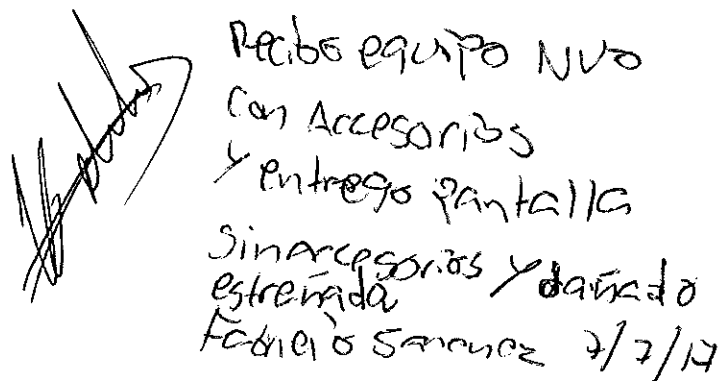 Recibo equipo NUO
Con Accesorios
y entrego pantalla
Sin Accesorios y dañado
estrenada
Sanchez 7/7/17